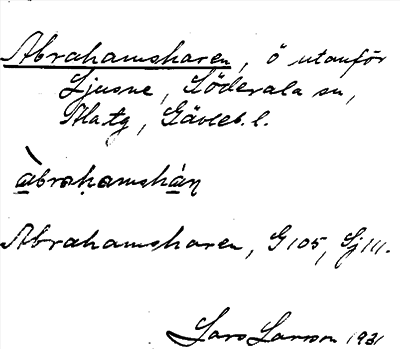 Abrahamsharen, ö utanför
Ljusne, Söderala sn,
Alatg, Gävleb. l.
àbrahamshán
Abrahamsharen, G105, Sj 111.
Lars Larson 1931